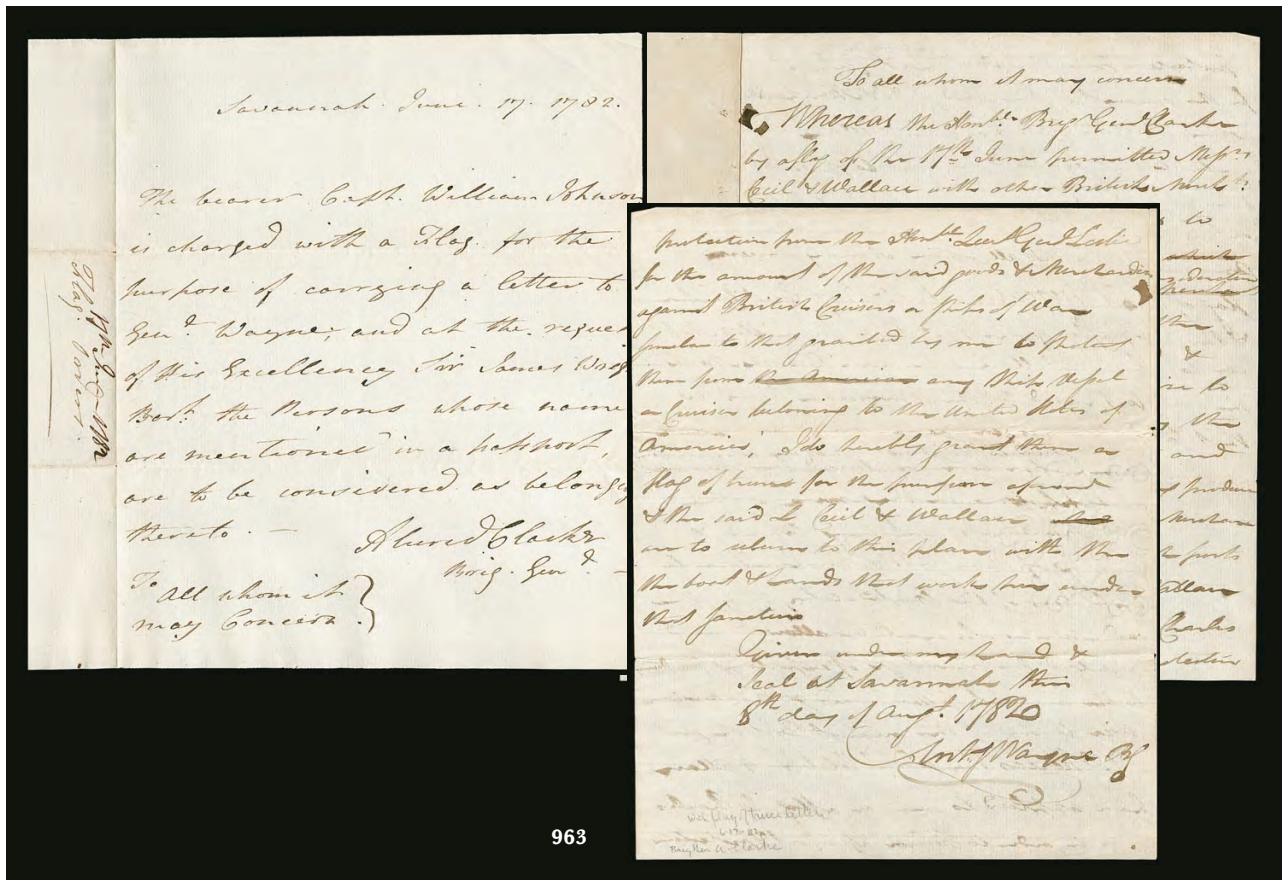 Savannah June 17. 1782.
The bearer Capt. William Johnson
is charged with a Flag. for the
purpose of carrying a letter to
Gen.l Wayne; and at the reques
of His Excellency Sir James Wrig
Bar.t the Persons whose name
are mentioned in a passport,
are to be considered as belongg
thereto. –
Alured Clarke
Brig. Gen.l –
To
All whom it
may Concern.
17th June 1782
Flag
To all whom it may concern
Whereas the Honble Brigr Genl Clarke
by a flag of the 17th June permitted Messrs
Ceil & Wallace with other British Mercht
to
which
the
&
to
the
and
produce
the ports
Wallace
Charles
protection
protection from the Honble Leut Genl Leslie
for the amount of the said goods & Merchandize
against British Cruisers or Ships of War
similar to that granted by me to protect
them from the American any Ship Vessel
or Cruiser beloning to the United States of
America, I do hereby grant them a
flag of truce for the purpose aforesd
& the said Ceil & Wallace
are to return to this place with the
the boat & hands that work her under
that sanction
Given under my hand &
Seal at Savannah this
8th day of Augt. 1782
Anty Wayne BG
With flag of truce letter
6-17-82
Brig Gen A. Clarke
963